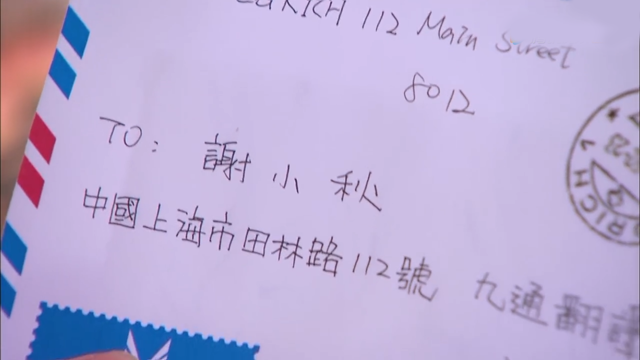 112 Main Street
8012
TO: 謝小秋
中國上海市田林路112號 九通翻譯
RICH 1